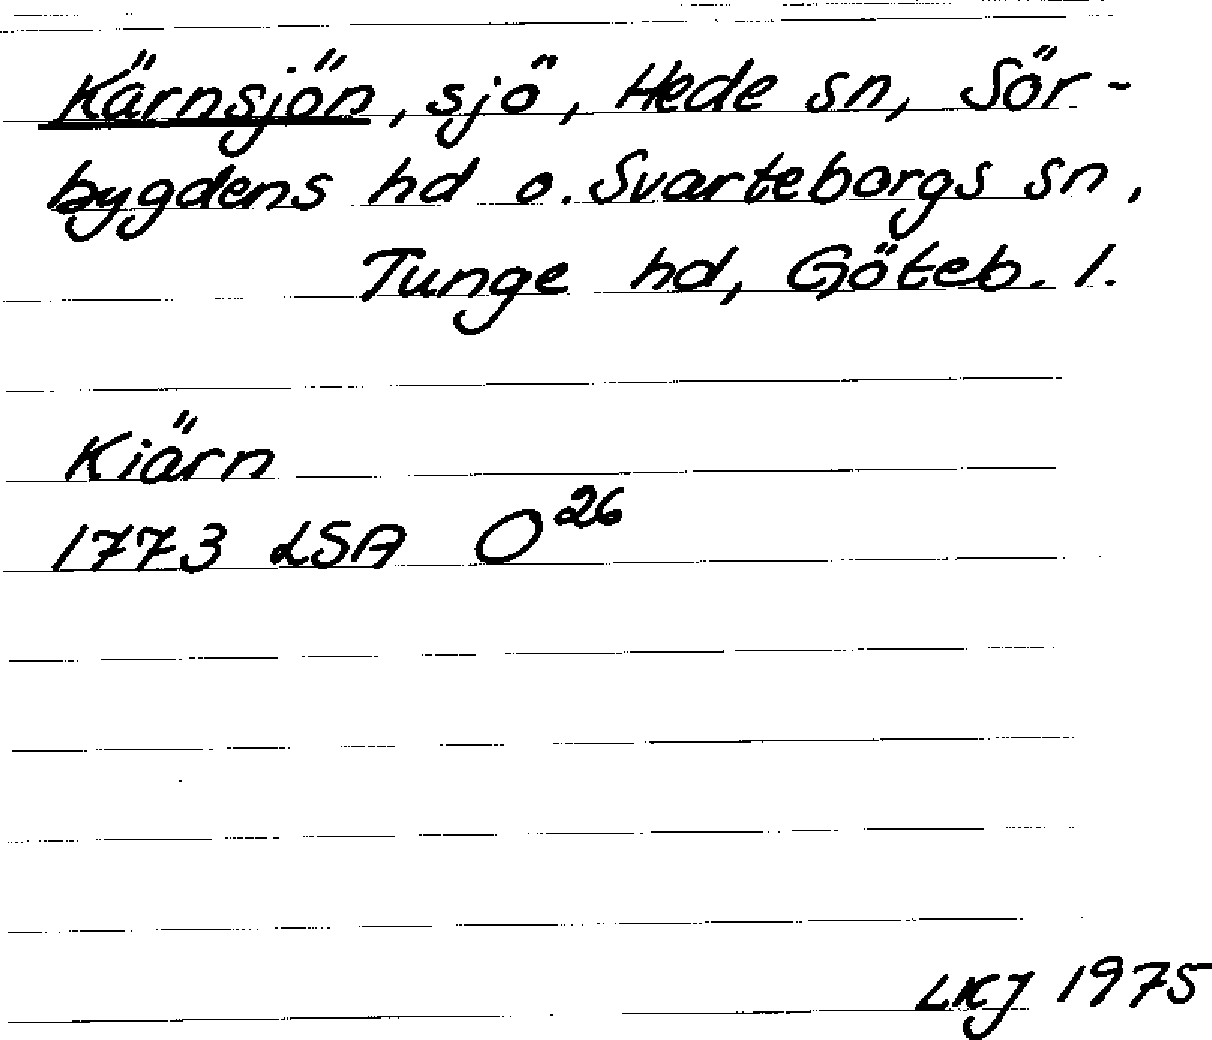 Kärnsjön, sjö, Hede sn, Sör-
bygdens hd o. Svarteborgs sn,
Tunge hd, Göteb. l.
Kiärn
1773 LSA O²⁶
LKJ 1975